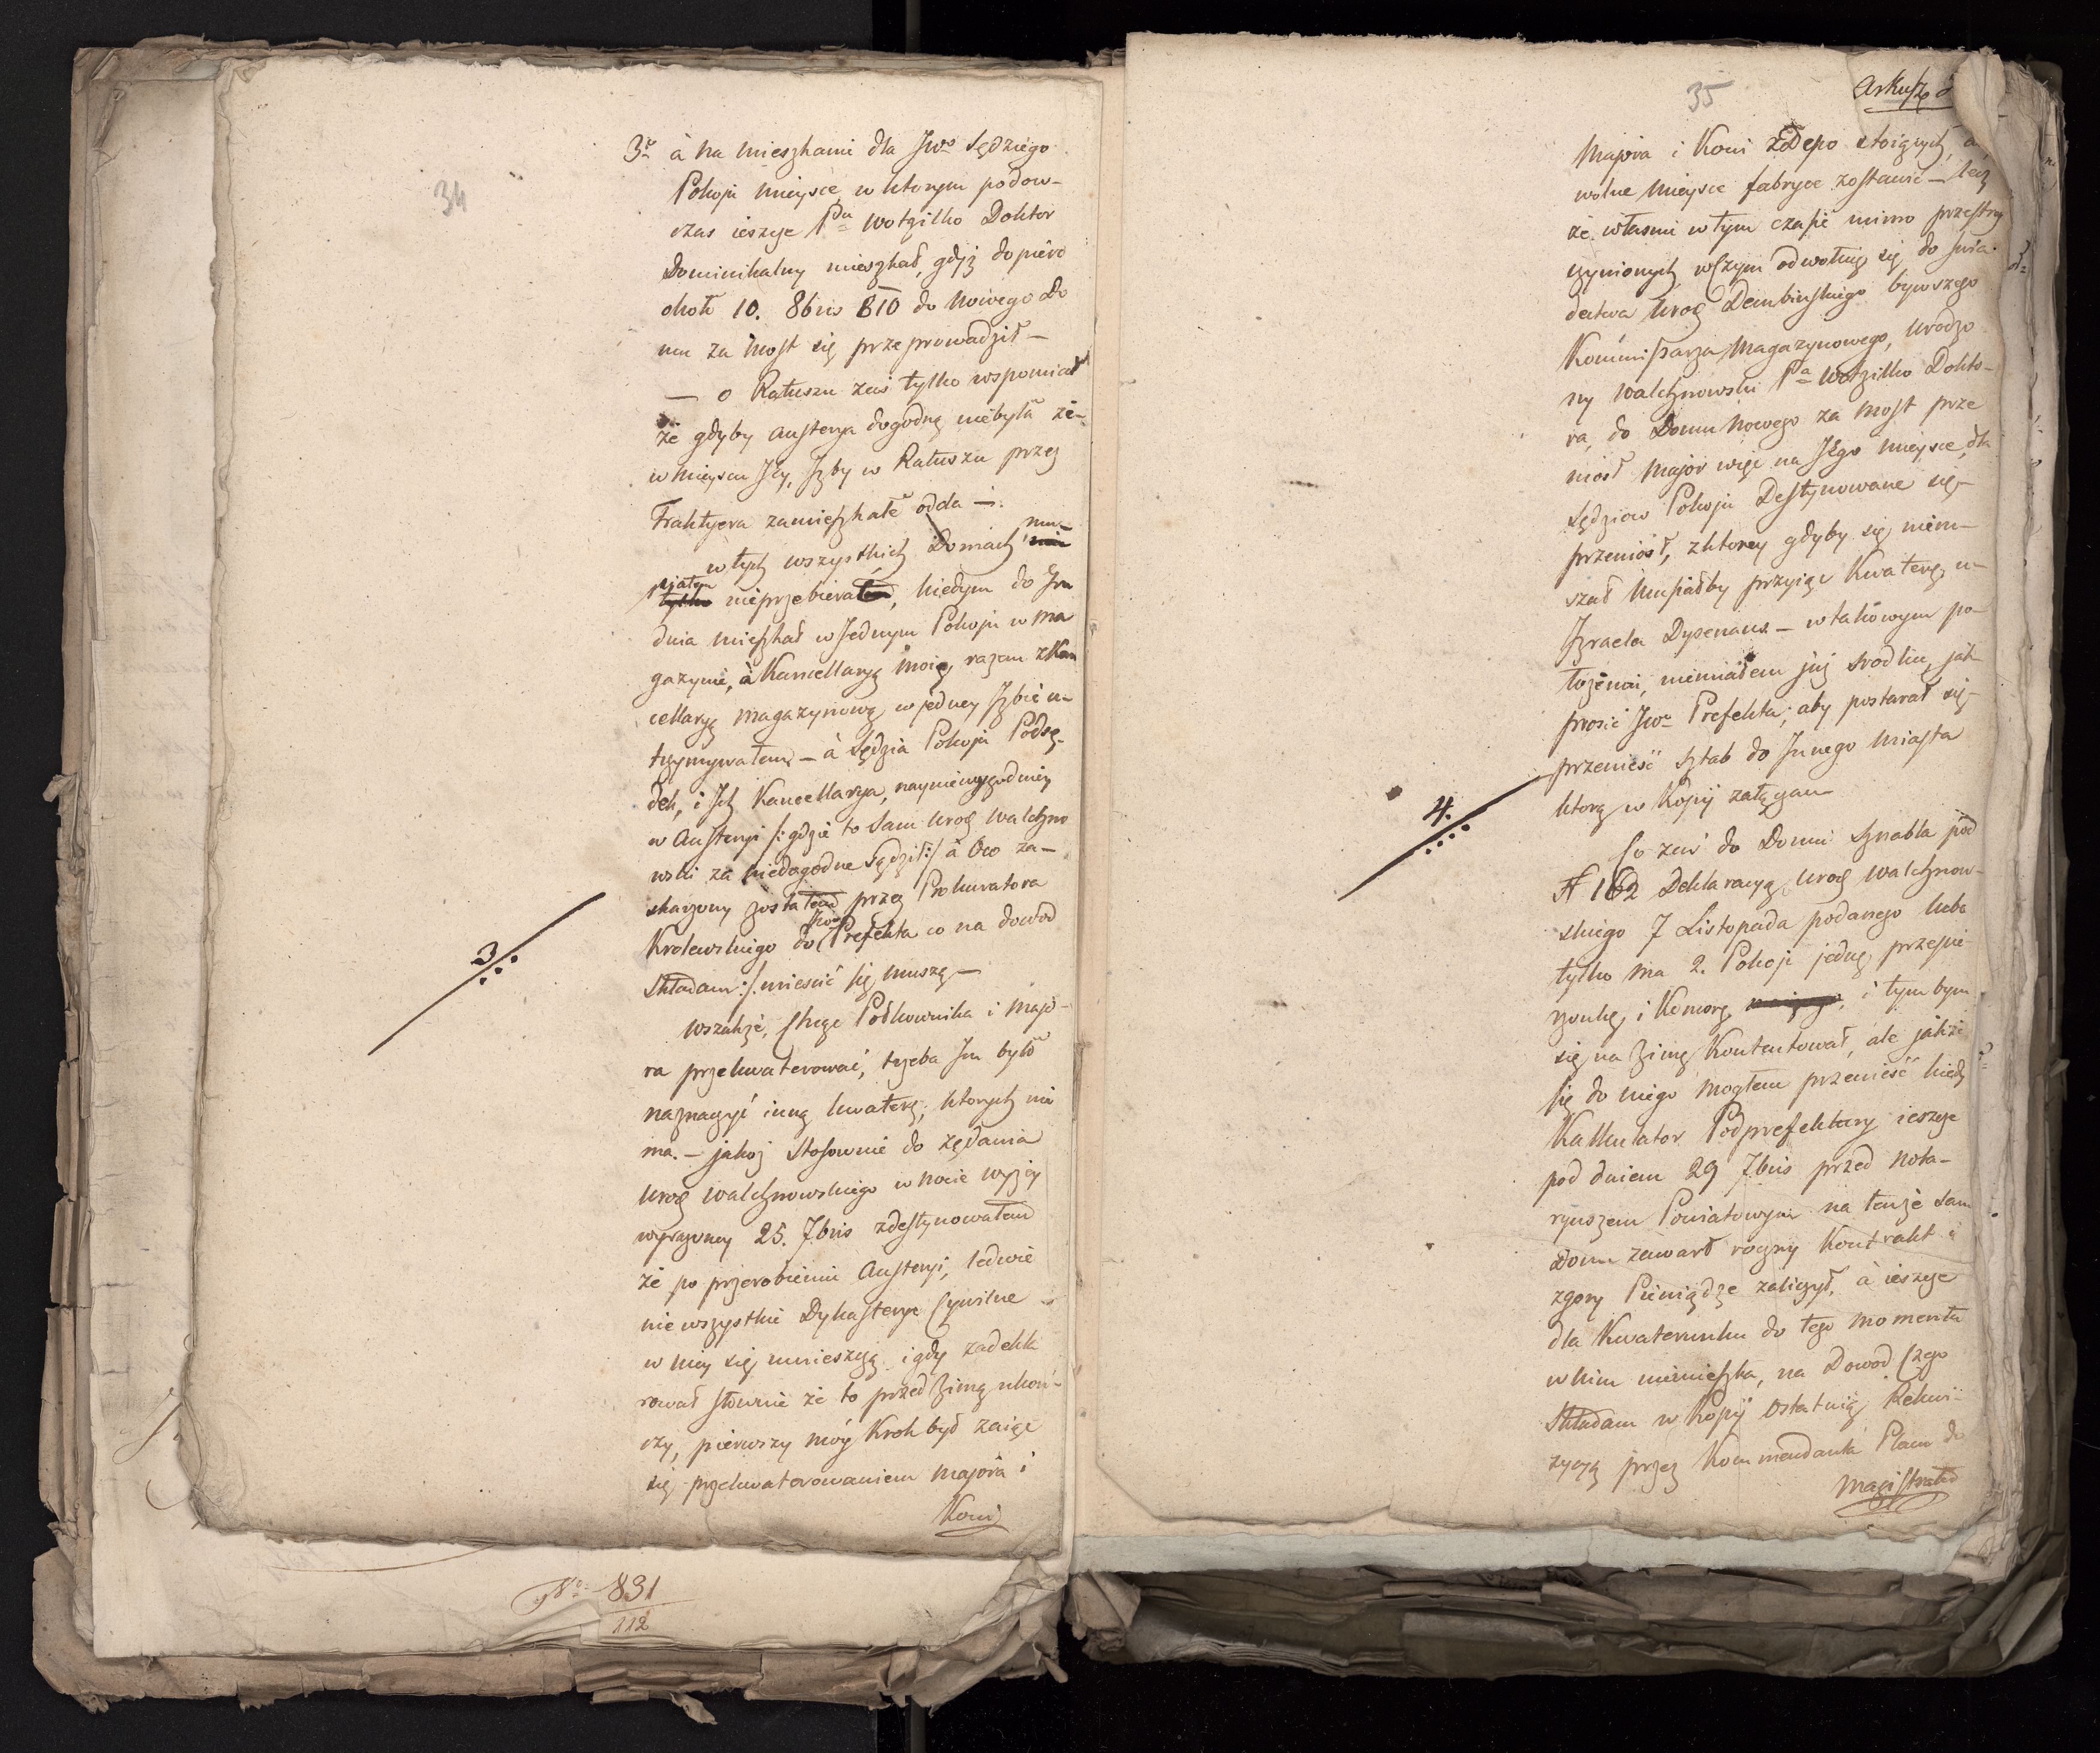 34
3º à na mieszkanie dla JWo Sędziego
Pokoju mieysce, w ktorym podow-
czas ieszcze Pa Wotzilko Doktor
Dominikalny mieszkał, gdyż dopiero
około 10. 8bris 810 do Nowego Do
mu za Most się przeprowadził —
— o Ratuszu zaś tylko wspomiał
że gdyby Austerya dogodną niebyła że-
w mieyscu Jey, Jzby w Ratuszu przez
Traktyera zamieszkałe odda —.
w tych wszystkich Domach
nieprzebierałem, kiedym do Gru
dnia mieszkał w Jednym Pokoju w Ma
gazynie, à Kancellaryą moię, razem z Kan
cellaryą magazynową w jedney Jzbie u-
trzymywałem — à Sędzia Pokoju Podsę-
dek, i Jch Kancellarya, naymniewygodniey
w Austeryi /: gdzie to sam Urog Walchno
wski za niedogodne Sądził :/ à Oco za-
skarzony zostałem przez Prokuratora
Krolewskiego do JWo Prefekta co na dowod
Składam :/ mieścić się muszą —
3
Wszakże, chcąc Półkownika i Majo-
ra przekwaterować, trzeba Jm było
naznaczyć inną kwaterę, ktorych nie
ma. — jakoż Stosownie do żędania
Urog Walchnowskiego w nocie wyżey
wyrażoney 25. 7bris zdestynowałem
że po przerobieniu Austeryi, ledwie
nie wszystkie Dykasterye Cywilne
w niey się umieszczą, i gdy zadekla
rował słownie że to przed Zimą ukoń-
czy, pierwszy móy Krok był zaiąć
się przekwaterowaniem Majora i
Koni
No 831
112
35
Arkusz
Majora i Koni z Depo stoiących, a
wolne mieysce fabryce zostawić — lecz
że własnie w tym czasie mimo przestrog
czynionych wczym odwołuię się do świa-
dectwa Urog Dembinskiego bywszego
Kommissarza Magazynowego, Urodzo
ny Walchnowski Pa Wotzilko Dokto-
ra, do Domu Nowego za Most prze
niosł Major więc na Jego mieysce, dla
Sędziow Pokoju Destynowane się-
przeniósł, zktorey gdyby się niem-
szał Musiałby przyiąć Kwaterę, u-
Jzraela Dysenaus — w takowym po-
łożeniu, niemiałem już srodku, jak
prosić JWo Prefekta; aby postarał się
przenieść Sztab do Jnnego Miasta
ktorą w Kopij załączam
4.
Co zaś do Domu Sznabla pod
N 162 Deklaracyą Urog Walchnow-
skiego 7 Listopada podanego lubo
tylko ma 2. Pokoje jedną przepie
rzonkę, i Komorę, i tym bym
się na Zimę Kontentował, ale jakże
się do niego mogłem przenieść kiedy
Kalkulator Podprefektury ieszcze
pod dniem 29 7bris przed Nota-
ryuszem Powiatowym na tenże sam
Dom zawarł roczny Kontrakt i
zgory Pieniądze zaliczył, à ieszcze
dla Kwaterunku do tego momentu
w nim niemieszka, na Dowod Czego
Składam w Kopij ostatnią Rekwi-
zycyą przez Kommendanta Placu do
Magistratu